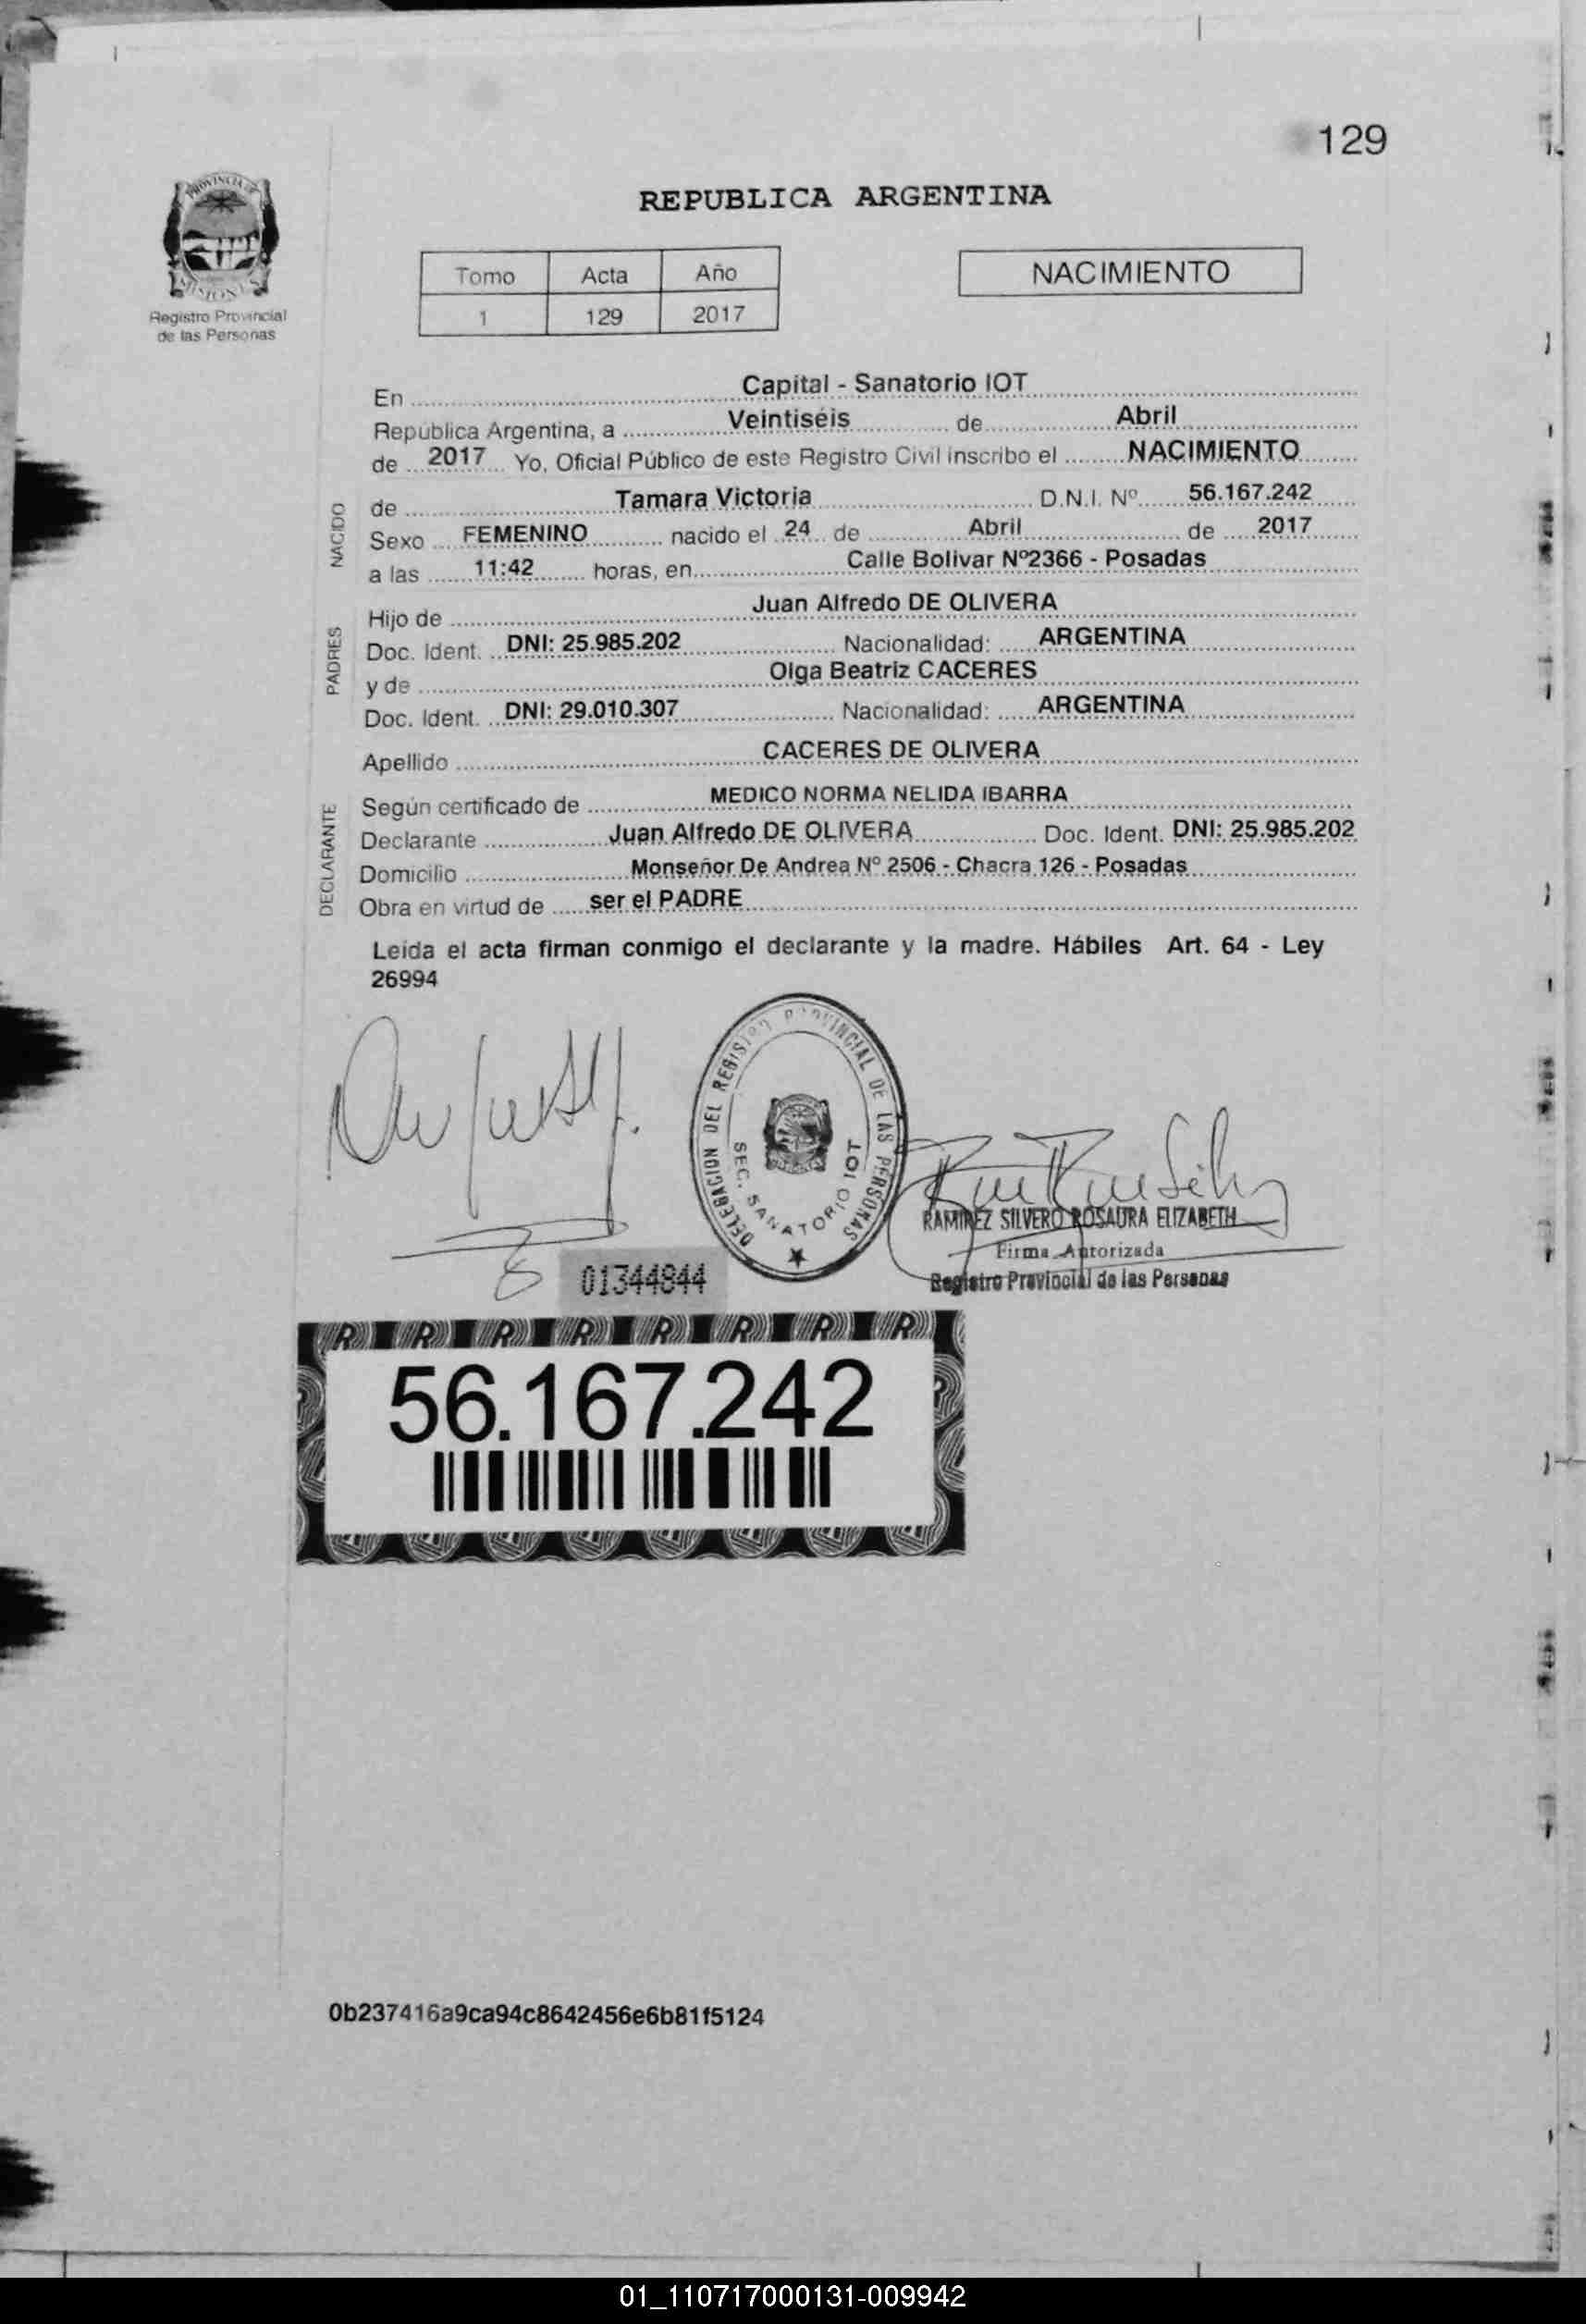 129
PROVINCIA DE
MISIONES
Registro Provincial
de las Personas
REPUBLICA ARGENTINA
Tomo Acta Año
1 129 2017
NACIMIENTO
En Capital - Sanatorio IOT
Republica Argentina, a Veintiséis de Abril
de 2017 Yo, Oficial Público de este Registro Civil inscribo el NACIMIENTO
NACIDO
de Tamara Victoria D.N.I. Nº 56.167.242
Sexo FEMENINO nacido el 24 de Abril de 2017
a las 11:42 horas, en Calle Bolivar Nº2366 - Posadas
PADRES
Hijo de Juan Alfredo DE OLIVERA
Doc. Ident. DNI: 25.985.202 Nacionalidad: ARGENTINA
y de Olga Beatriz CACERES
Doc. Ident. DNI: 29.010.307 Nacionalidad: ARGENTINA
Apellido CACERES DE OLIVERA
DECLARANTE
Según certificado de MEDICO NORMA NELIDA IBARRA
Declarante Juan Alfredo DE OLIVERA Doc. Ident. DNI: 25.985.202
Domicilio Monseñor De Andrea Nº 2506 - Chacra 126 - Posadas
Obra en virtud de ser el PADRE
Leida el acta firman conmigo el declarante y la madre. Hábiles Art. 64 - Ley
26994
DELEGACION DEL REGISTRO PROVINCIAL DE LAS PERSONAS
SEC. SANATORIO IOT
RAMIREZ SILVERO ROSAURA ELIZABETH
Firma Autorizada
Registro Provincial de las Personas
01344844
56.167.242
0b237416a9ca94c8642456e6b81f5124
01_110717000131-009942